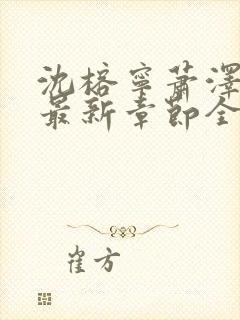 沈榕寧蕭澤
最新章節全
崔方